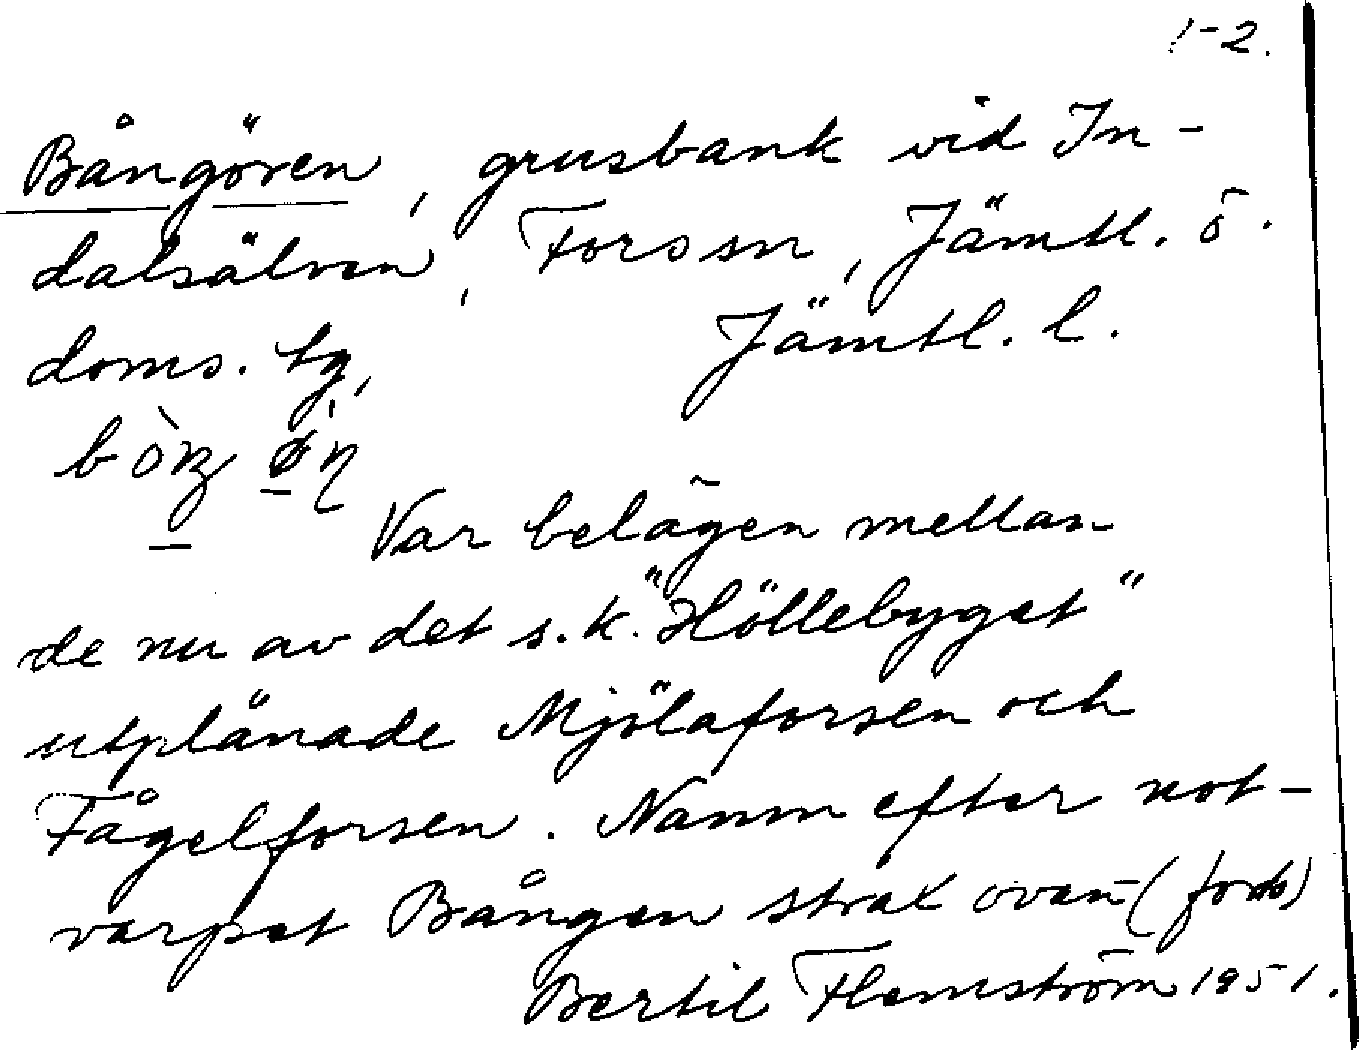 1-2.
Bångören, grusbank vid In-
dalsälven, Fors sn, Jämtl. ö.
doms. tg, Jämtl. l.
Var belägen mellan
de nu av det s.k. "Höllebyget"
utplånade Mjölaforsen och
Fågelforsen. Namn efter not-
varpet Bången strax ovan- (forts)
Bertil Flemström 1951.